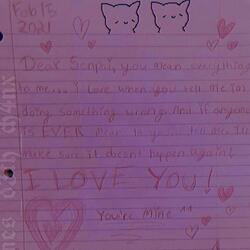 Feb 13
2021
Dear Senpai, you mean everything
to me... I love when you tell me I'm
doing something wrong. And if anyone
IS EVER mean to you... tell me I'll
make sure it doesnt happen again!
I LOVE YOU!
You're Mine ^^